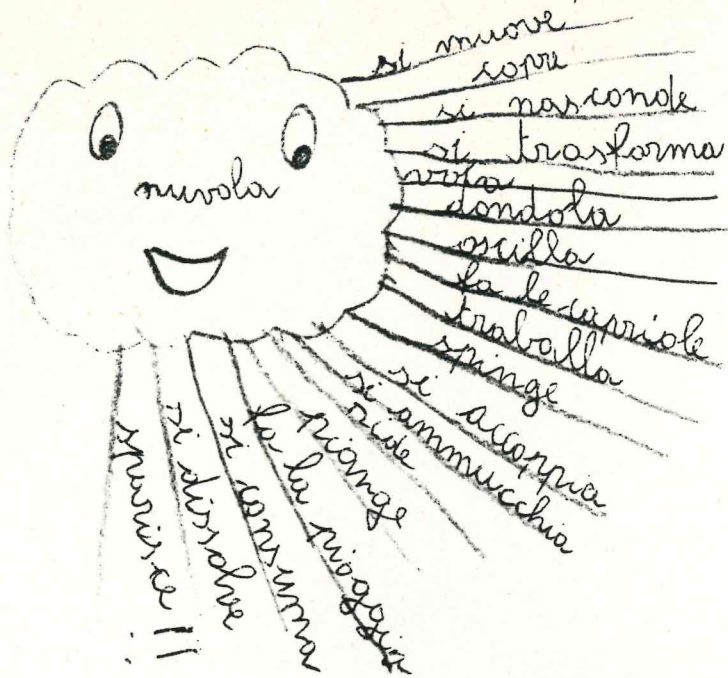 nuvola
si muove
copre
si nasconde
si trasforma
vola
dondola
oscilla
fa le capriole
traballa
spinge
si accoppia
si ammucchia
ride
piange
fa la pioggia
si consuma
si dissolve
sparisce!!